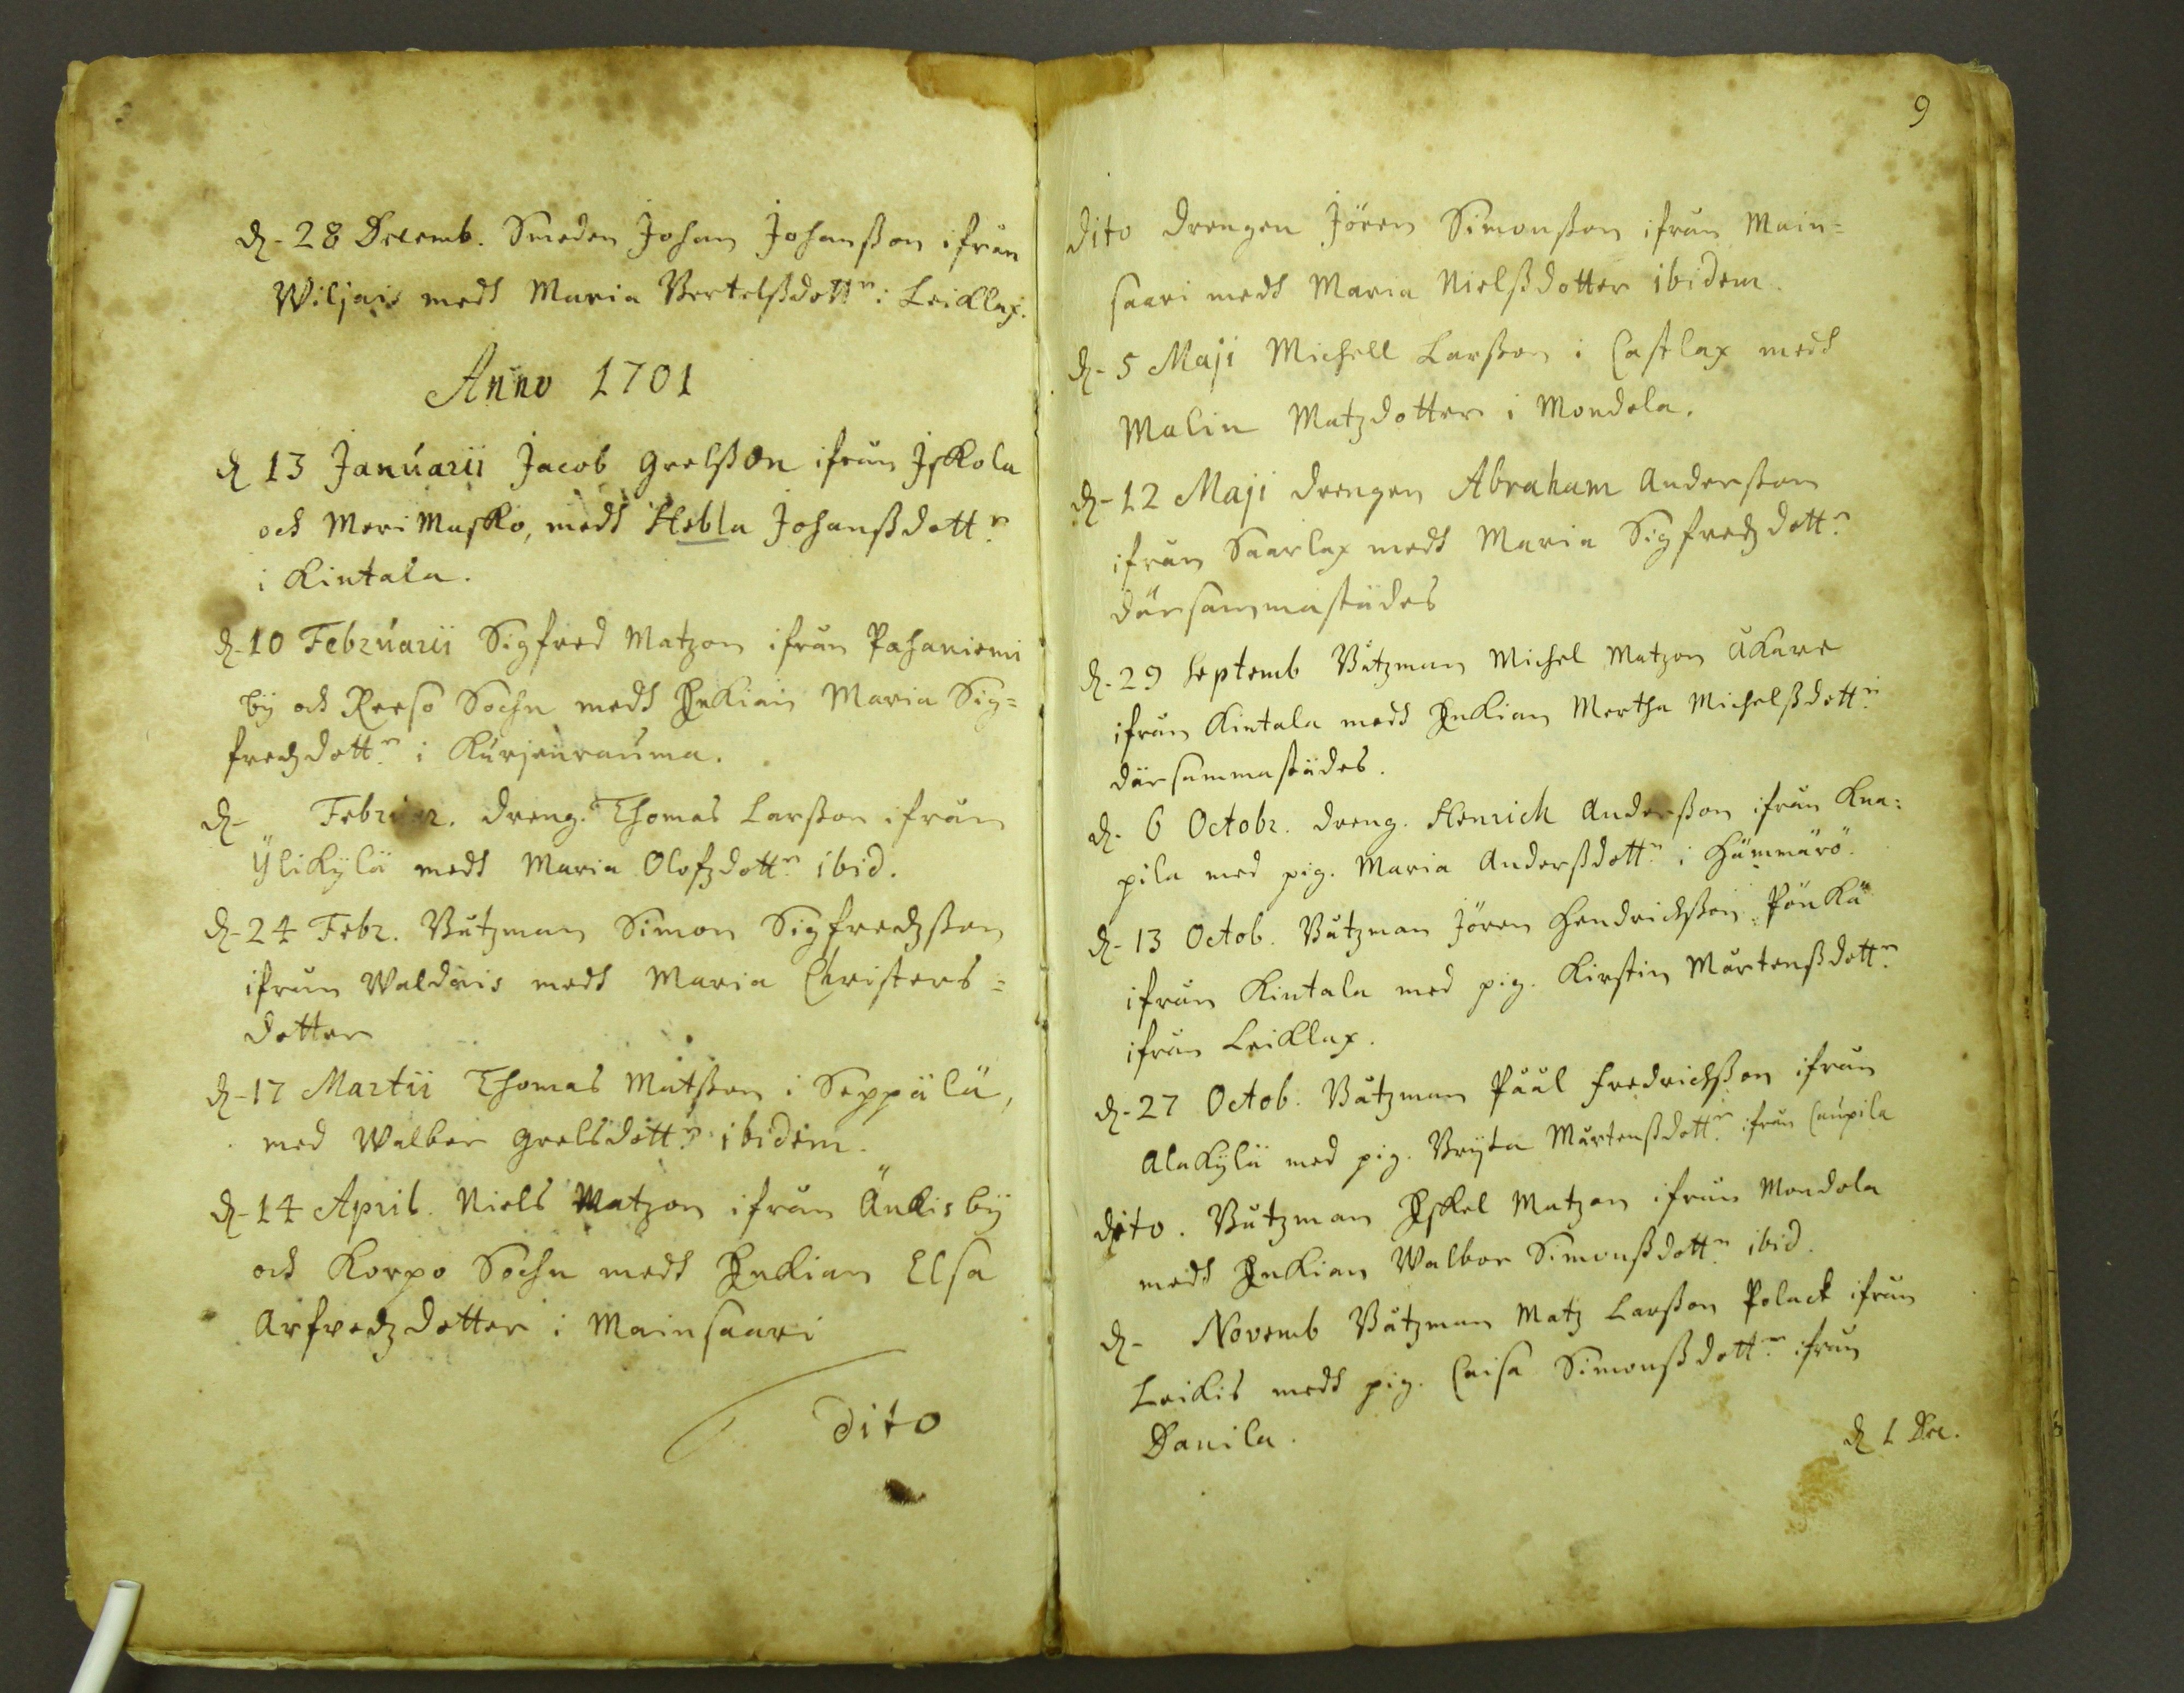 d. 28 Decemb. Smeden Johan Johanßon ifrån
Wiljais medh Maria Bertelßdottr i Leiklax.
Anno 1701
d 13 Januarii Jacob Grelßon ifrån Iskola
och Meri Masko, medh Hebla Johanßdottr
i Kintala.
d. 10 Februarii Sigfred Matzon ifrån Pahaniemi
by och Reeso Sochn medh Enkian Maria Sig=
fredzdottr i Kurjenrauma.
d. Februar. dreng. Thomas Larßon ifrån
Ylikylä medh Maria Olofzdottr ibid.
d. 24 Febr. Båtzman Simon Sigfredzßon
ifrån Waldais medh Maria Christers=
dotter
d. 17 Martii Thomas Matßon i Seppälä,
med Walbor Grelsdottr ibidem.
d. 14 April. Niels Matzon ifrån Änkis by
och Korpo Sochn medh Enkian Elsa
Arfvedzdotter i Mainsaari
dito
9
dito drengen Jören Simonßon ifrån Main=
saari medh Maria Nielßdotter ibidem.
d. 5 Maji Michell Larßon i Castlax medh
Malin Matzdotter i Mondola.
d. 12 Maji drengen Abraham Anderßon
ifrån Saarlax medh Maria Sigfredzdottr
därsammastädes
d. 29 Septemb Båtzman Michel Matzon Åkare
ifrån Kintala medh Enkian Mertha Michelßdottr
därsammastädes.
d. 6 Octobr. dreng. Henrich Anderßon ifrån Kna=
pila med pig. Maria Anderßdottr i Hämmärö.
d. 13 Octob. Båtzman Jören Hendrichßon Pönkä
ifrån Kintala med pig. Kirstin Mårtenßdottr
ifrån Leiklax.
d. 27 Octob. Båtzman Påål Fredrichßon ifrån
Alakylä med pig. Bryta Mårtenßdottr ifrån Caupila
dito. Båtzman Eskel Matzon ifrån Mondola
medh Enkian Walbor Simonßdottr ibid.
d. Novemb Båtzman Matz Larßon Polack ifrån
Leikis medh pig. Caisa Simonßdottr ifrån
Danila.
d 1 Dec.